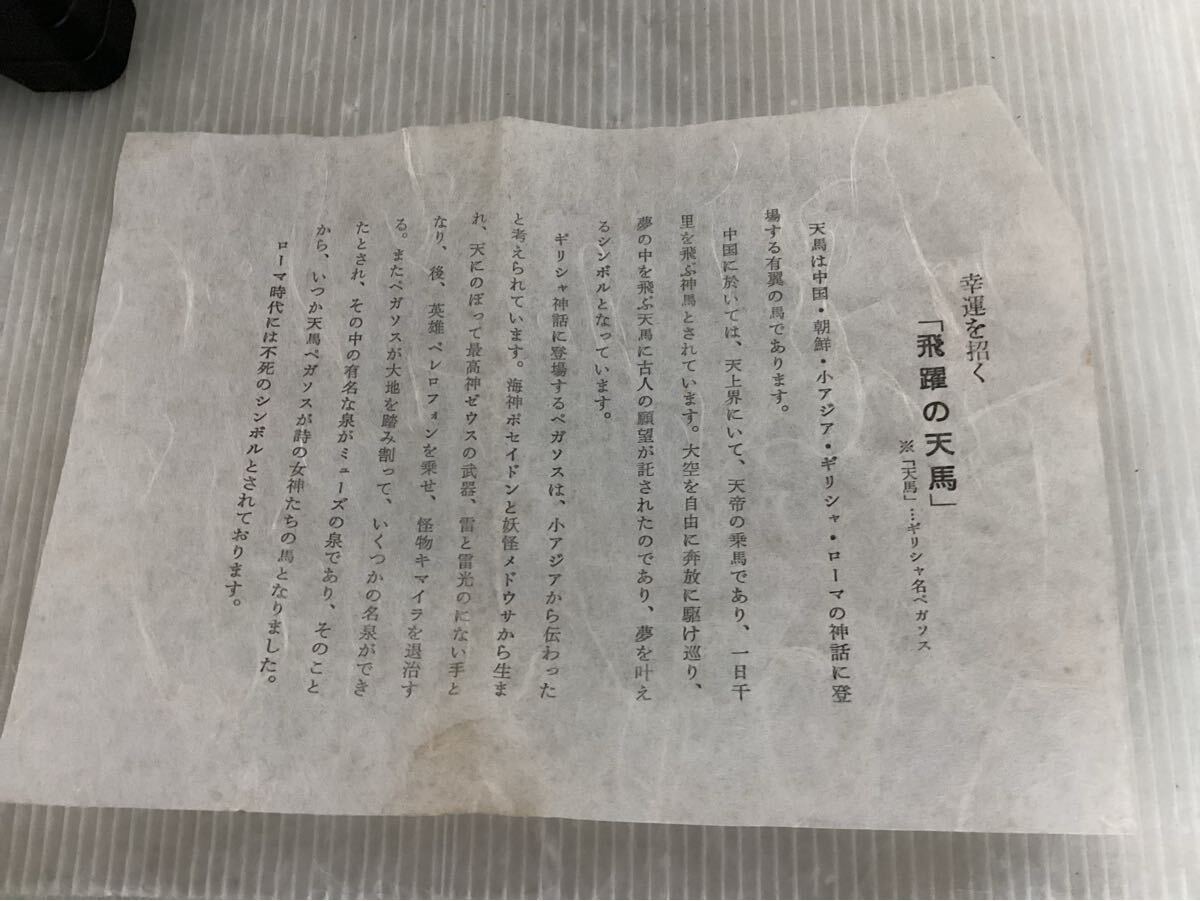 幸運を招く
「飛躍の天馬」
※「天馬」…ギリシャ名ペガソス
天馬は中国・朝鮮・小アジア・ギリシャ・ローマの神話に登
場する有翼の馬であります。
中国に於いては、天上界にいて、天帝の乗馬であり、一日千
里を飛ぶ神馬とされています。大空を自由に奔放に駆け巡り、
夢の中を飛ぶ天馬に古人の願望が託されたのであり、夢を叶え
るシンボルとなっています。
ギリシャ神話に登場するペガソスは、小アジアから伝わった
と考えられています。海神ポセイドンと妖怪メドウサから生ま
れ、天にのぼって最高神ゼウスの武器、雷と雷光のにない手と
なり、後、英雄ベレロフォンを乗せ、怪物キマイラを退治す
る。またペガソスが大地を踏み割って、いくつかの名泉ができ
たとされ、その中の有名な泉がミューズの泉であり、そのこと
から、いつか天馬ペガソスが詩の女神たちの馬となりました。
ローマ時代には不死のシンボルとされております。